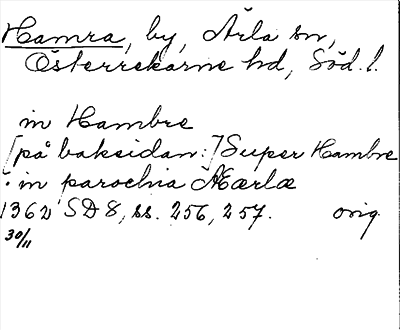 Hamra, by, Ärla sn,
Österrekarne hd, Söd. l.
in Hambre
[på baksidan:] Super Hambre
: in parochia Ærlæ
1362 SD 8, ss. 256, 257. orig.
30/11